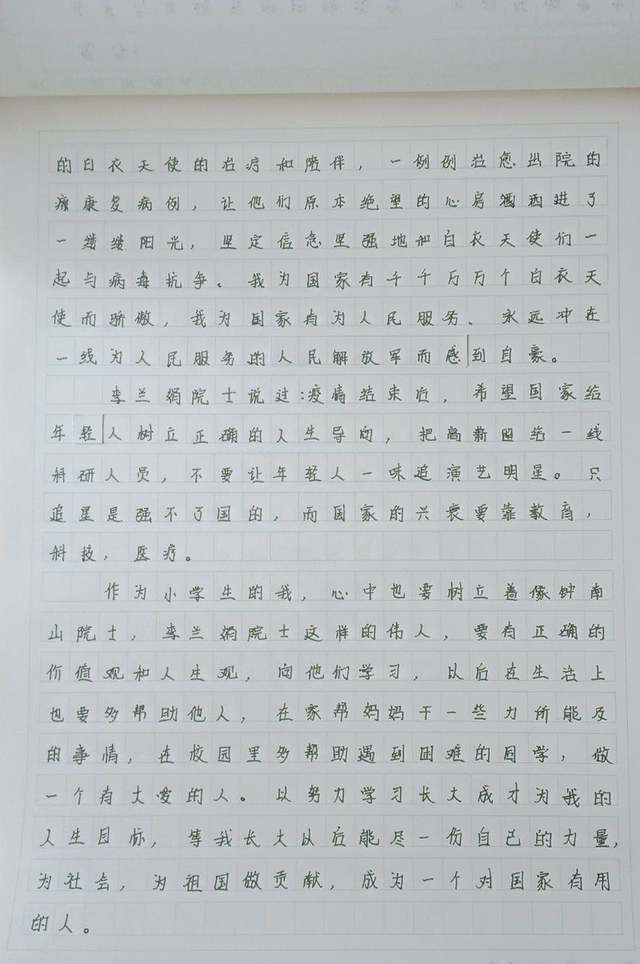 的白衣天使的治疗和陪伴，一例例治愈出院的
康复病例，让他们原本绝望的心房洒进了
一缕缕阳光，坚定信念坚强地和白衣天使们一
起与病毒抗争。我为国家有千千万万个白衣天
使而骄傲，我为国家有为人民服务、永远冲在
一线为人民服务的人民解放军而感到自豪。
李兰娟院士说过：疫情结束后，希望国家给
年轻人树立正确的人生导向，把高薪留给一线
科研人员，不要让年轻人一味追演艺明星。只
追星是强不了国的，而国家的兴衰要靠教育，
科技，医疗。
作为小学生的我，心中也要树立着像钟南
山院士，李兰娟院士这样的伟人，要有正确的
价值观和人生观，向他们学习，以后在生活上
也要多帮助他人，在家帮妈妈干一些力所能及
的事情，在校园里多帮助遇到困难的同学，做
一个有大爱的人。以努力学习长大成才为我的
人生目标，等我长大以后能尽一份自己的力量，
为社会，为祖国做贡献，成为一个对国家有用
的人。